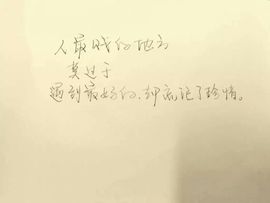 人最贱的地方
莫过于
遇到最好的,却忘记了珍惜。